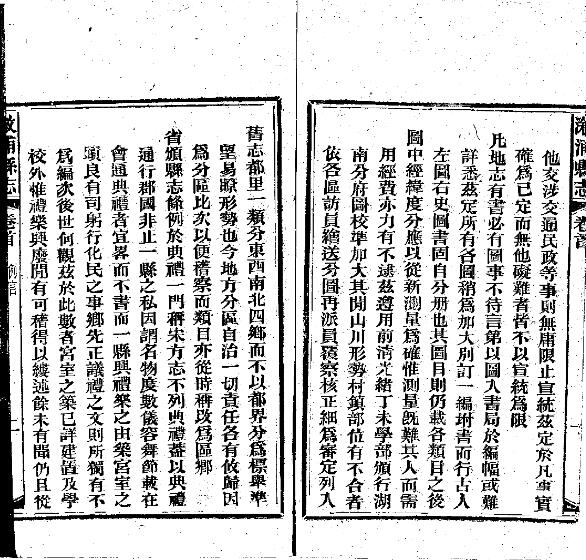 溆浦縣志
卷首
他交涉交通民政等事則無庸限止宣統茲定於凡事實
確爲已定而無他礙難者皆不以宣統爲限
凡地志有書必有圖事不待言第以圖入書局於編幅或難
詳悉茲定所有各圖稍爲加大別訂一編坿書而行古人
左圖右史圖書固自分册也其圖目則仍載各類目之後
圖中經緯度分應以從新測量爲確惟測量旣難其人而需
用經費亦力有不逮茲遵用前淸光緖丁未學部頒行湖
南分府圖校準加大其閒山川形勢村鎮部位有不合者
依各區訪員繪送分圖再派員覆察核正細爲審定列入
舊志都里一類分東西南北四鄉而不以都界分爲標舉準
望易瞭形勢也今地方分區自治一切責任各有攸歸因
爲分區比次以便稽察而類目亦從時稱改爲區鄉
省頒縣志條例於典禮一門稱朱方志不列典禮蓋以典禮
通行郡國非止一縣之私因謂名物度數儀容舞節載在
會通典禮者宜畧而不書而一縣興禮樂之由築宮室之
頃良有司躬行化民之事鄉先正議禮之文則所獨有不
爲編次後世何觀茲於此數者宮室之築已詳建置及學
校外惟禮樂興廢閒有可稽得以縷述餘未有聞仍且從
溆浦縣志
卷首
例言
一